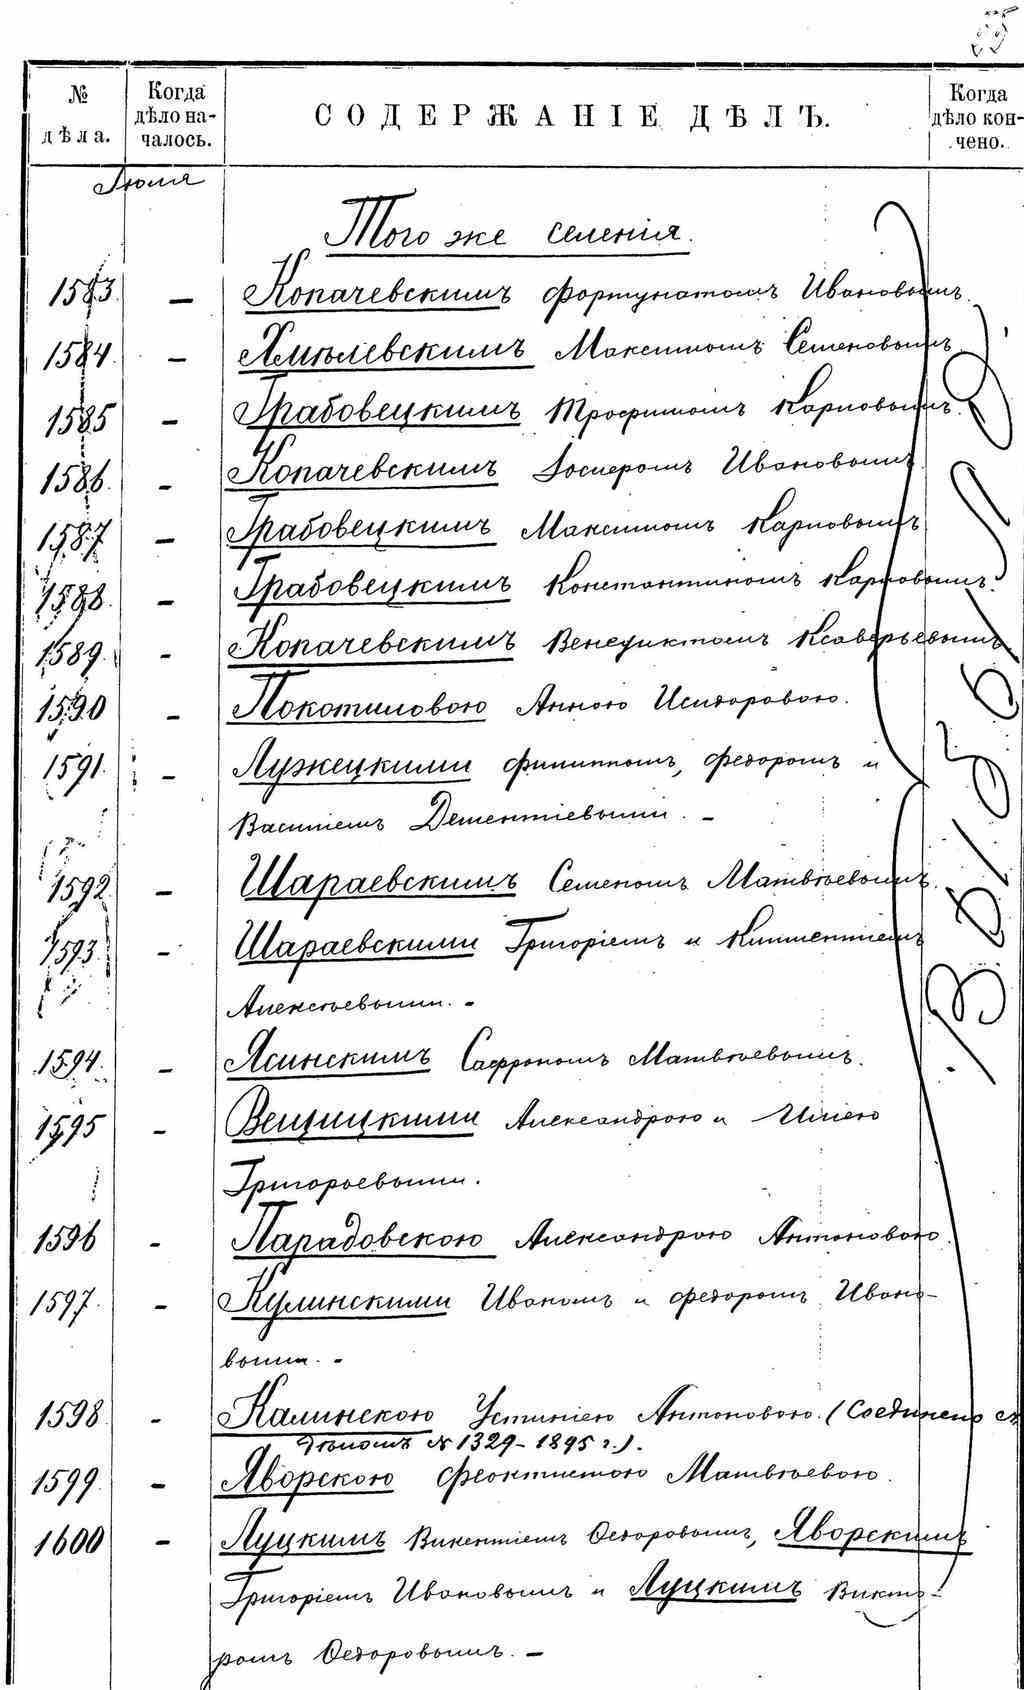 55
№ дѣла.
Когда дѣло на-чалось.
СОДЕРЖАНІЕ ДѢЛЪ.
Когда дѣло кон-чено.
Іюля
Того же селенія.
1583. – Копачевскимъ Фортунатомъ Ивановымъ.
1584. – Хмѣлевскимъ Максимомъ Семеновымъ
1585 – Грабовецкимъ Трофимомъ Карповымъ.
1586. – Копачевскимъ Іосиеромъ Ивановымъ
1587 – Грабовецкимъ Максимомъ Карповымъ
1588. – Грабовецкимъ Константиномъ Карповымъ.
1589. – Копачевскимъ Венедиктомъ Ксаверьевымъ
1590 – Покотиловою Анною Исидоровою.
1591. – Лужецкими Филиппомъ, Федоромъ и
Василіемъ Дементіевыми. –
1592 – Шараевскимъ Семеномъ Матвѣевымъ.
1593. – Шараевскими Григоріемъ и Климентіемъ
Алексѣевыми. –
1594. – Ясинскимъ Сафрономъ Матвѣевымъ.
1595 – Вещицкими Александрою и Юліею
Григорьевыми.
1596 – Парадовскою Александрою Антоновою.
1597. – Кулинскими Иваномъ и Федоромъ Ивано-
выми. –
1598. – Калинскою Устиніею Антоновою. (Соединено съ
дѣломъ № 1329 – 1895 г.).
1599. – Яворскою Феоктистою Матвѣевою.
1600 – Луцкимъ Викентіемъ Ѳедоровымъ, Яворскимъ
Григоріемъ Ивановымъ и Луцкимъ Викто-
ромъ Ѳедоровымъ. –